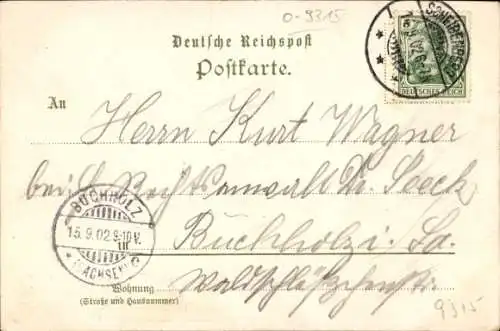 O-9315
Deutsche Reichspost
Postkarte.
SCHEIBENBERG
DEUTSCHES REICH
An
Herrn Kurt Wagner
bei Rechtsanwalt Dr.
BUCHHOLZ
15.9.02.9-10V.
* (SACHSEN) C
Buchholz i. Sa.
Wohnung
(Straße und Hausnummer)
9315